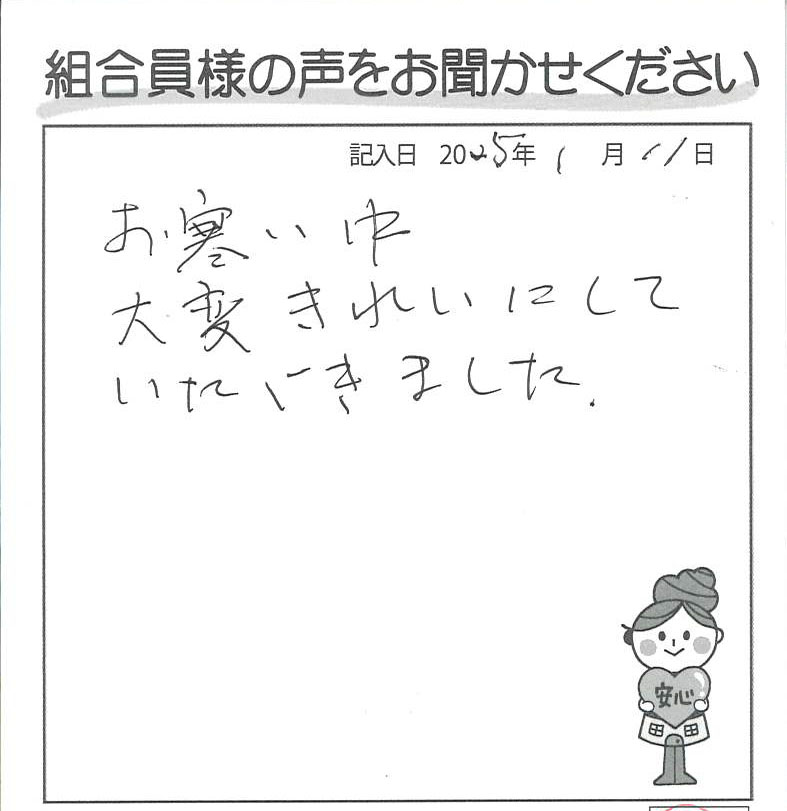 組合員様の声をお聞かせください
記入日 2025年 1月 11日
お寒い中
大変きれいにして
いただきました.
安心